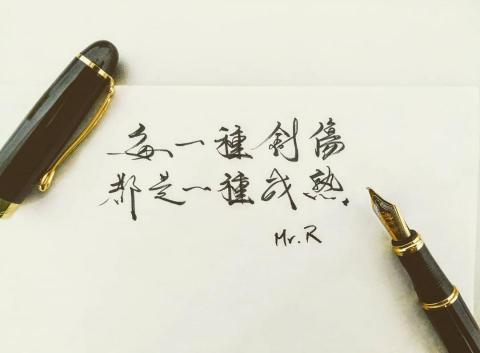 每一種創傷
都是一種成熟.
Mr. R